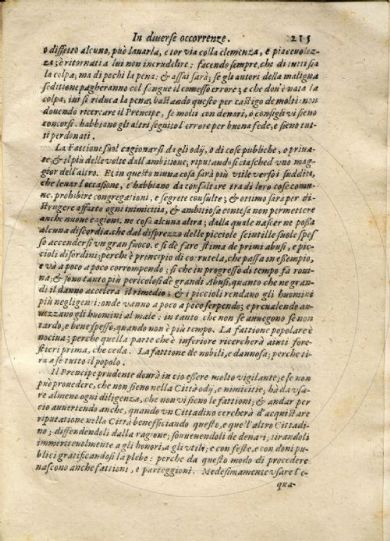 In diuerse occorrenze. 215
o difetto alcuno, può leuarla, e tor via colla clemenza, e piaceuolez-
za; e ritornati a lui non incrudelire; facendo sempre, che di tutti sia
la colpa; ma di pochi la pena: & assai sarà; se gli autori della maligna
seditione pagheranno col sangue il commesso errore; e che dou'è nata la
colpa, iui si riduca la pena, bastando questo per castigo de molti: non
douendo ricercare il Prencipe, se molti con denari, o consigli vi sieno
concorsi. habbiano gli altri seguito l'errore per buona fede, e sieno tut-
ti perdonati.
La Fattione suol cagionarsi da gli odÿ, o di cose publiche, o priua-
te; & il più delle volte dall'ambitione, riputandosi ciascheduno mag-
gior dell'altro. Et in questo niuna cosa sarà più vtile verso i sudditi,
che leuar l'occasione, c'habbiano da consultare tra di loro cose comu-
ne. prohibire congregationi, e segrete consulte; & ottimo sarà per di-
struggere affatto ogni inimicitia, & ambitiosa contesa non permettere
anche nuoue cagioni. ne cosa alcuna altra; dalla quale nascer ne possa
alcuna discordia, che dal disprezzo delle picciole scintille suole spes-
so accendersi vn gran fuoco. e si dè fare stima de primi abusi, e pic-
cioli disordini; perche è principio di corrutela, che passa in esempio,
e và a poco a poco corrompendo; sì che in progresso di tempo fà roui-
na; & sono tanto più pericolosi de grandi Abusi, quanto che ne gran-
di il danno accelera il rimedio; & i piccioli rendano gli huomini
più negligenti: onde vanno a poco a poco serpendo; e preualendo au-
uezzano gli huomini al male: in tanto che non se auuegono se non
tardo, e bene spesso, quando non è più tempo. La fattione popolare è
nociua; perche quella parte che è inferiore ricercherà aiuti fore-
stieri prima, che ceda. La fattione de nobili, e dannosa; perche ti-
ra a se tutto il popolo.
Il Prencipe prudente dourà in ciò essere molto vigilante; e se non
può prouedere, che non sieno nella Città odÿ, e nimicitie, hà da vsa-
re almeno ogni diligenza, che non vi sieno le fattioni; & andar per
ciò auuertendo anche, quando vn Cittadino cercherà d'acquistare
riputatione nella Città beneficiando questo, e quel'altro Cittadi-
no; diffendendoli dalla ragione; souuenendoli de denari; tirandoli
immeriteuolmente a gli honori, a gli vtili; e con feste, e con doni pu-
blici gratificandosi la plebe: perche da questo modo di procedere
nascono anche fattioni, e parteggioni. Medesimamente vsare l'e-
qua-